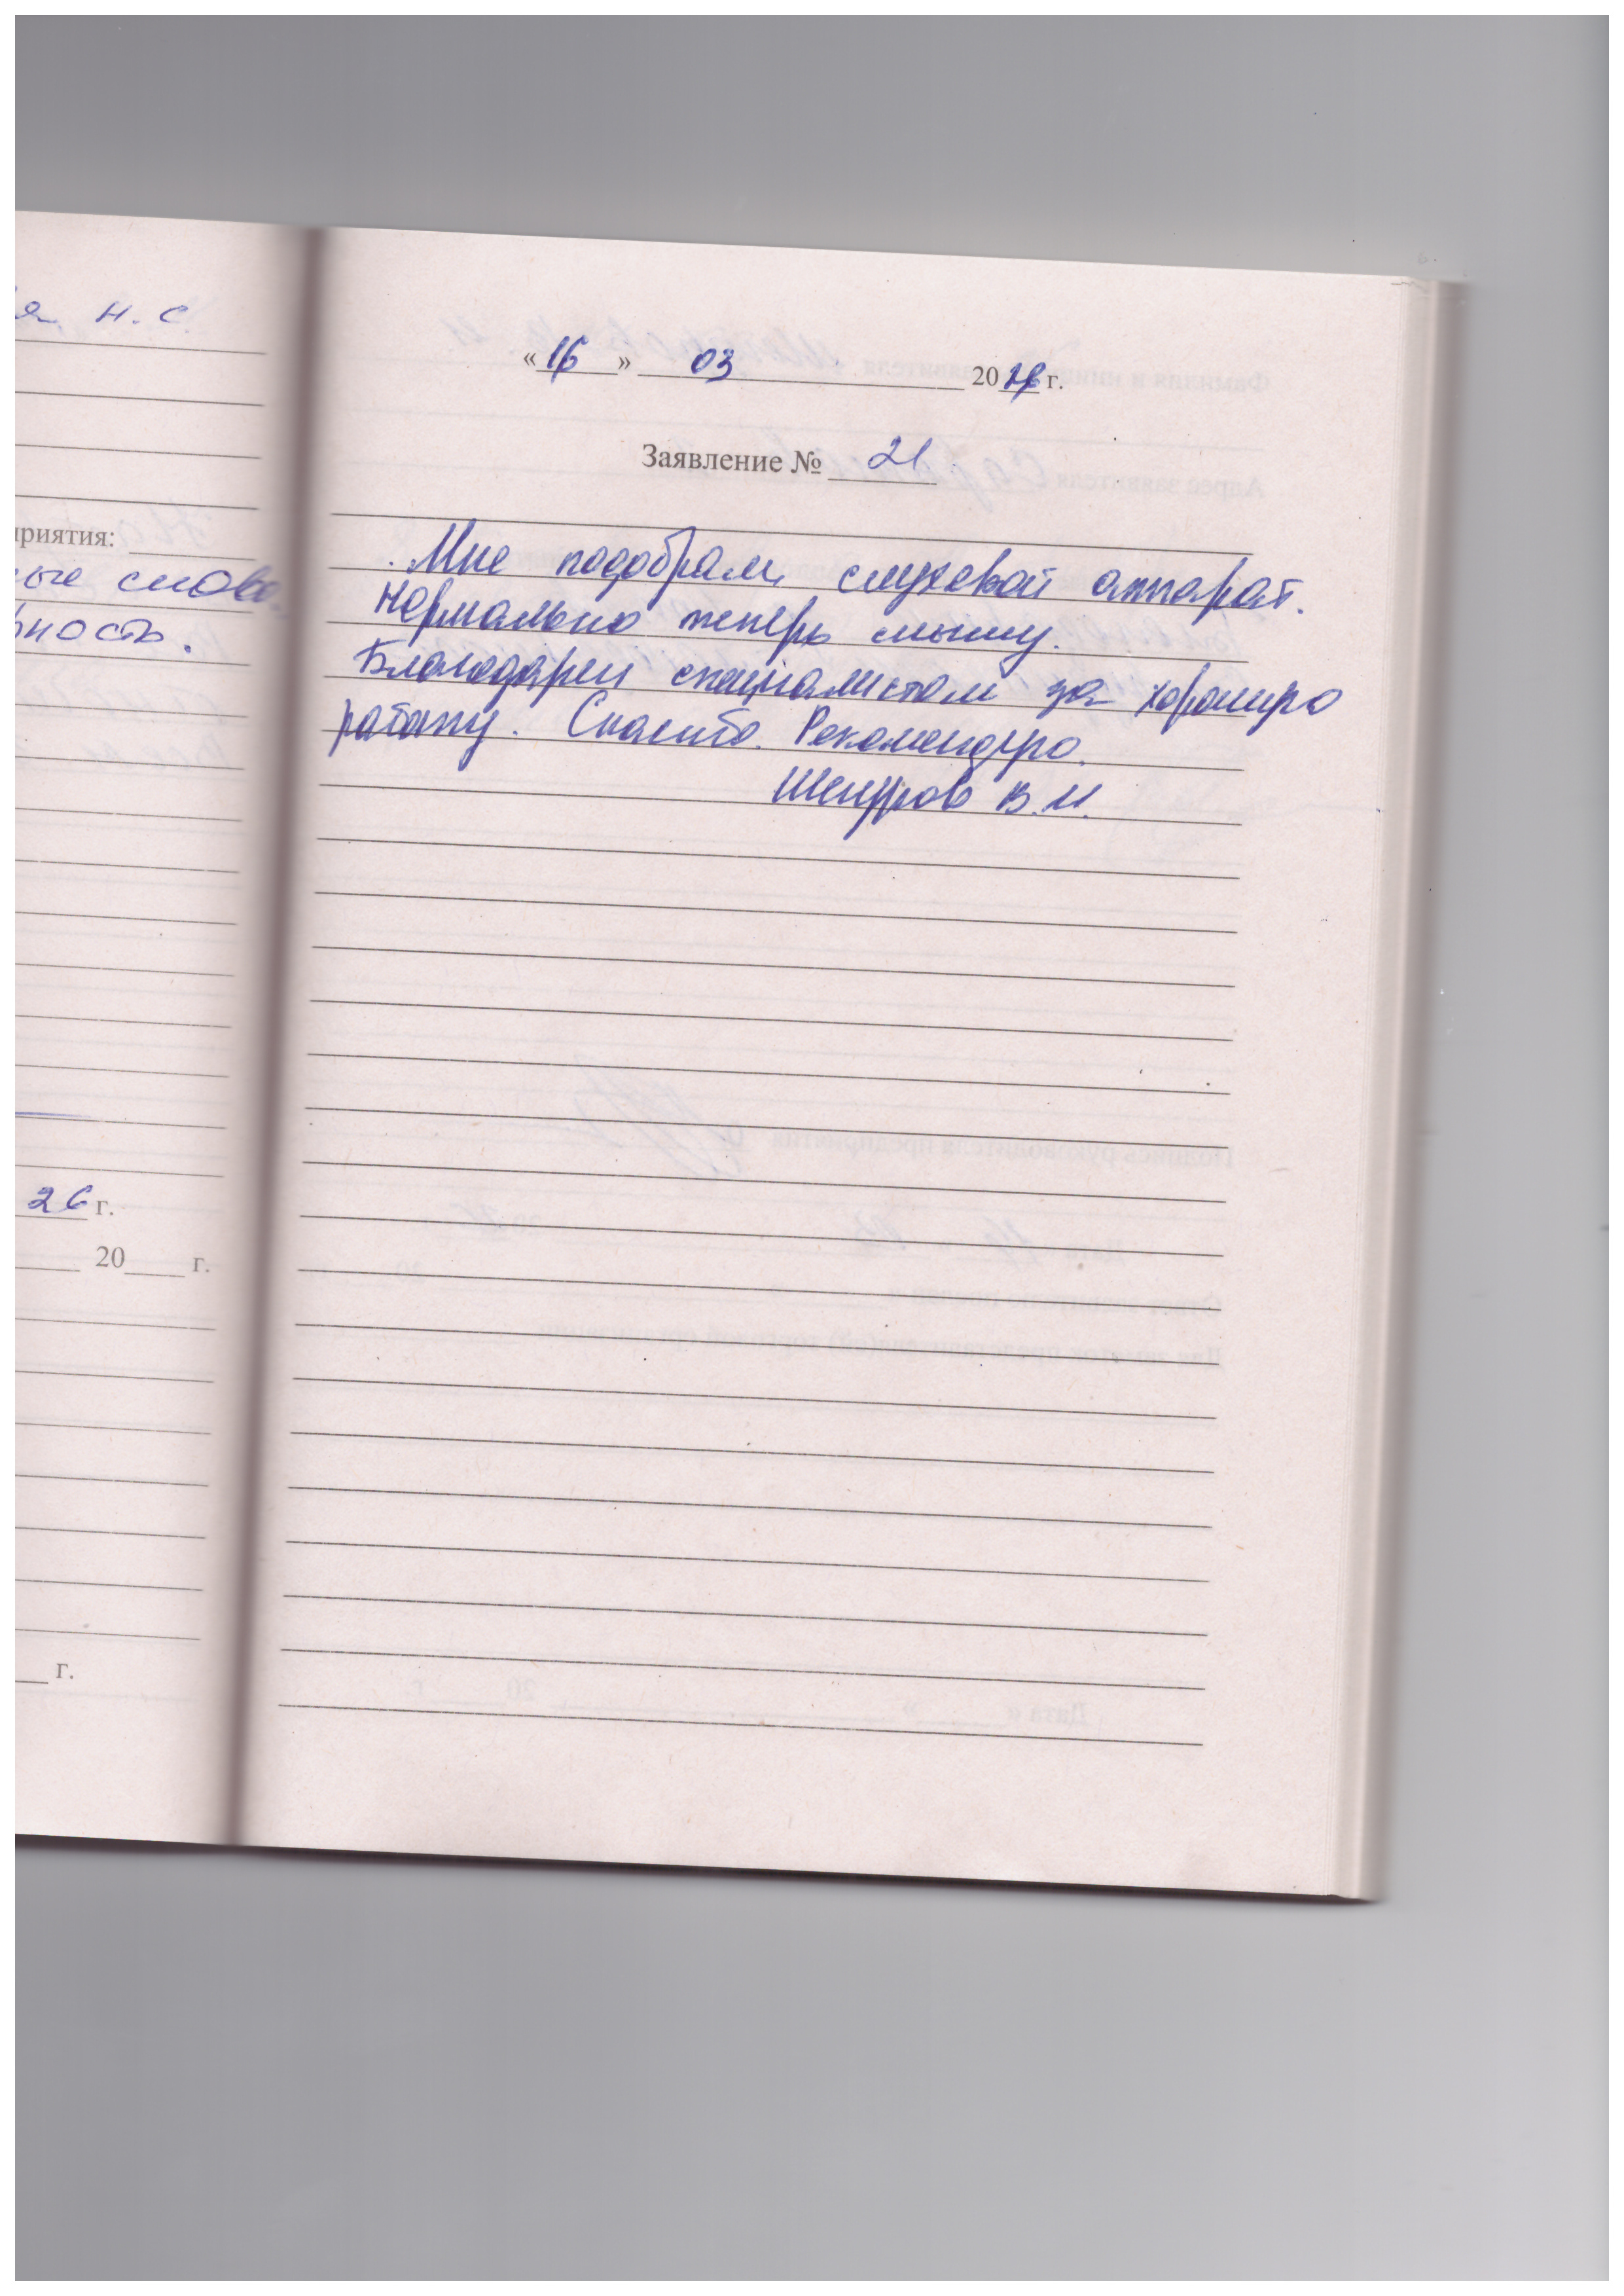 я. Н. С.
приятия:
ые слова
ность.
26 г.
20 г.
г.
«16» 03 2026 г.
Заявление № 21
Мне подобрали слуховой аппарат.
Нормально теперь слышу.
Благодарен специалистам за хорошую
работу. Спасибо. Рекомендую.
В.И.